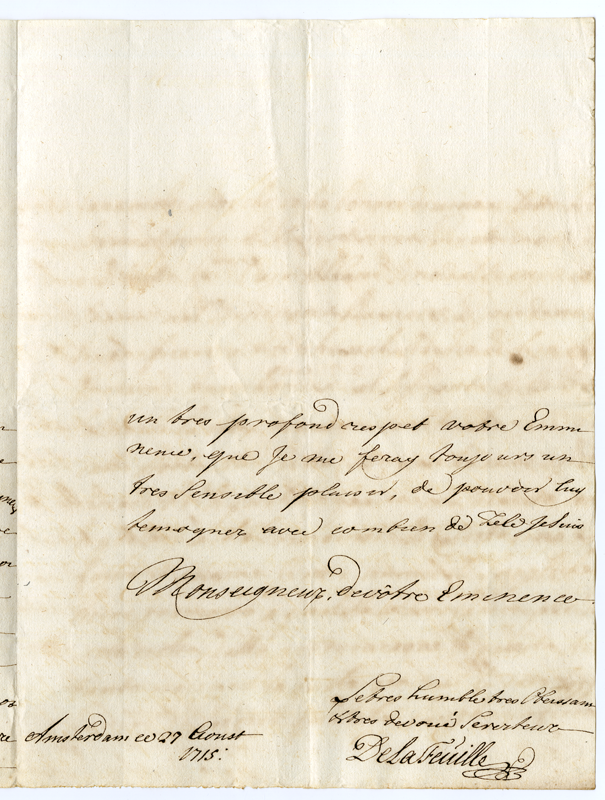 un tres profond respet votre Emmi
nence, que Je me feray toujours un
tres sensible plaisir, de pouvoir luy
temogner avec combien de Zele Je suis
Monseigneur, de vôtre Eminence
Le tres humble tres Obeissam
& tres devoué Serviteur
Amsterdam ce 27 Aoust
1715:
De La Feuille